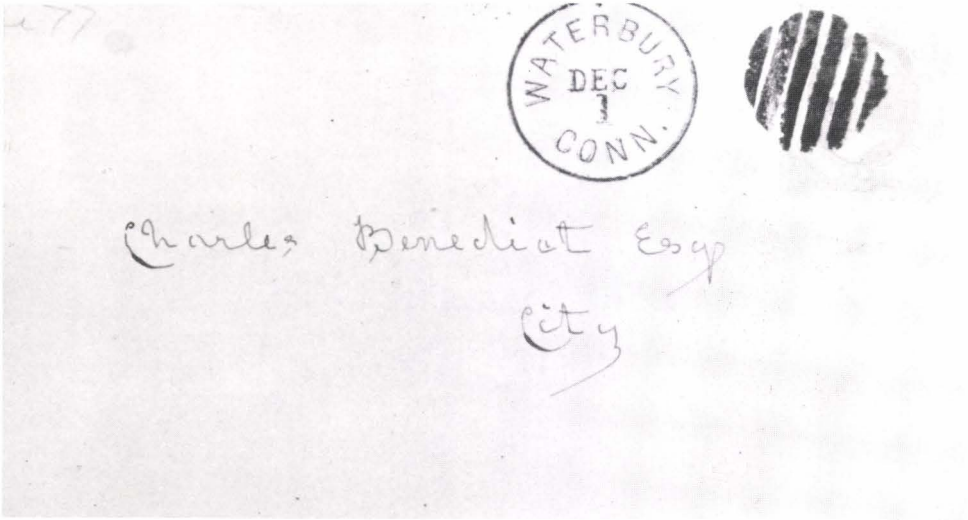 77
WATERBURY
DEC
1
CONN.
Charles Benedict Esqr
City